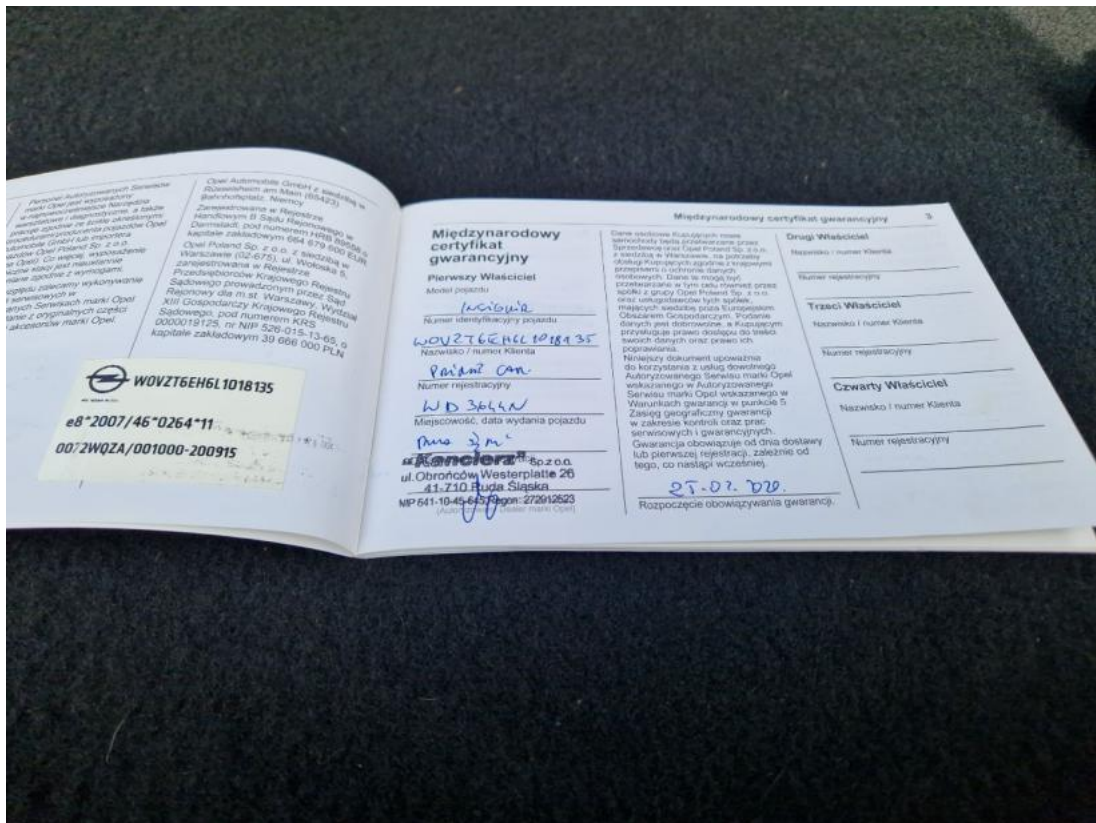 Personel Autoryzowanych Serwisów
marki Opel jest wyposażony
w najnowocześniejsze Narzędzia
warsztatowe i diagnostyczne, a także
pracuje zgodnie ze ściśle określonymi
procedurami producenta pojazdów Opel
Automobile GmbH lub importera
pojazdów Opel Poland Sp. z o.o.
Opel). Co więcej, wyposażenie
stacji jest nieustannie
zgodnie z wymogami.
zalecamy wykonywanie
serwisowych w
Serwisach marki Opel
z oryginalnych części
i akcesoriów marki Opel.
Opel Automobile GmbH z siedzibą w
Rüsselsheim am Main (65423)
Bahnhofsplatz, Niemcy
Zarejestrowana w Rejestrze
Handlowym B Sądu Rejonowego w
Darmstadt, pod numerem HRB
kapitale zakładowym 664 679 500 EUR
Opel Poland Sp. z o.o. z siedzibą w
Warszawie (02-675), ul. Wołoska 5,
zarejestrowana w Rejestrze
Przedsiębiorców Krajowego Rejestru
Sądowego prowadzonym przez Sąd
Rejonowy dla m.st. Warszawy, Wydział
XIII Gospodarczy Krajowego Rejestru
Sądowego, pod numerem KRS
0000019125, nr NIP 526-015-13-65, o
kapitale zakładowym 39 666 000 PLN
W0VZT6EH6L1018135
e8*2007/46*0264*11
0072WQZA/001000-200915
Międzynarodowy certyfikat gwarancyjny 3
Międzynarodowy
certyfikat
gwarancyjny
Pierwszy Właściciel
Model pojazdu
INSIGNIA
Numer identyfikacyjny pojazdu
W0VZT6EH6L1018135
Nazwisko / numer Klienta
CAR
Numer rejestracyjny
WD 3644N
Miejscowość, data wydania pojazdu
"Kanclerz" Sp.z o.o.
ul.Obrońców Westerplatte 26
41-710 Ruda Śląska
NIP 641-10-45-645, Regon: 272912523
(Autoryzowany Dealer marki Opel)
Dane osobowe Kupujących nowe
samochody będą przetwarzane przez
Sprzedawcę oraz Opel Poland Sp. z o.o.
z siedzibą w Warszawie, na potrzeby
obsługi Kupujących zgodnie z krajowymi
przepisami o ochronie danych
osobowych. Dane te mogą być
przetwarzane w tym celu również przez
spółki z grupy Opel Poland Sp. z o.o.
oraz usługodawców tych spółek,
mających siedzibę poza Europejskim
Obszarem Gospodarczym. Podanie
danych jest dobrowolne, a Kupującym
przysługuje prawo dostępu do treści
swoich danych oraz prawo ich
poprawiania.
Niniejszy dokument upoważnia
do korzystania z usług dowolnego
Autoryzowanego Serwisu marki Opel
wskazanego w Autoryzowanego
Serwisu marki Opel wskazanego w
Warunkach gwarancji w punkcie 5
Zasięg geograficzny gwarancji
w zakresie kontroli oraz prac
serwisowych i gwarancyjnych.
Gwarancja obowiązuje od dnia dostawy
lub pierwszej rejestracji, zależnie od
tego, co nastąpi wcześniej.
Rozpoczęcie obowiązywania gwarancji.
Drugi Właściciel
Nazwisko / numer Klienta
Numer rejestracyjny
Trzeci Właściciel
Nazwisko / numer Klienta
Numer rejestracyjny
Czwarty Właściciel
Nazwisko / numer Klienta
Numer rejestracyjny